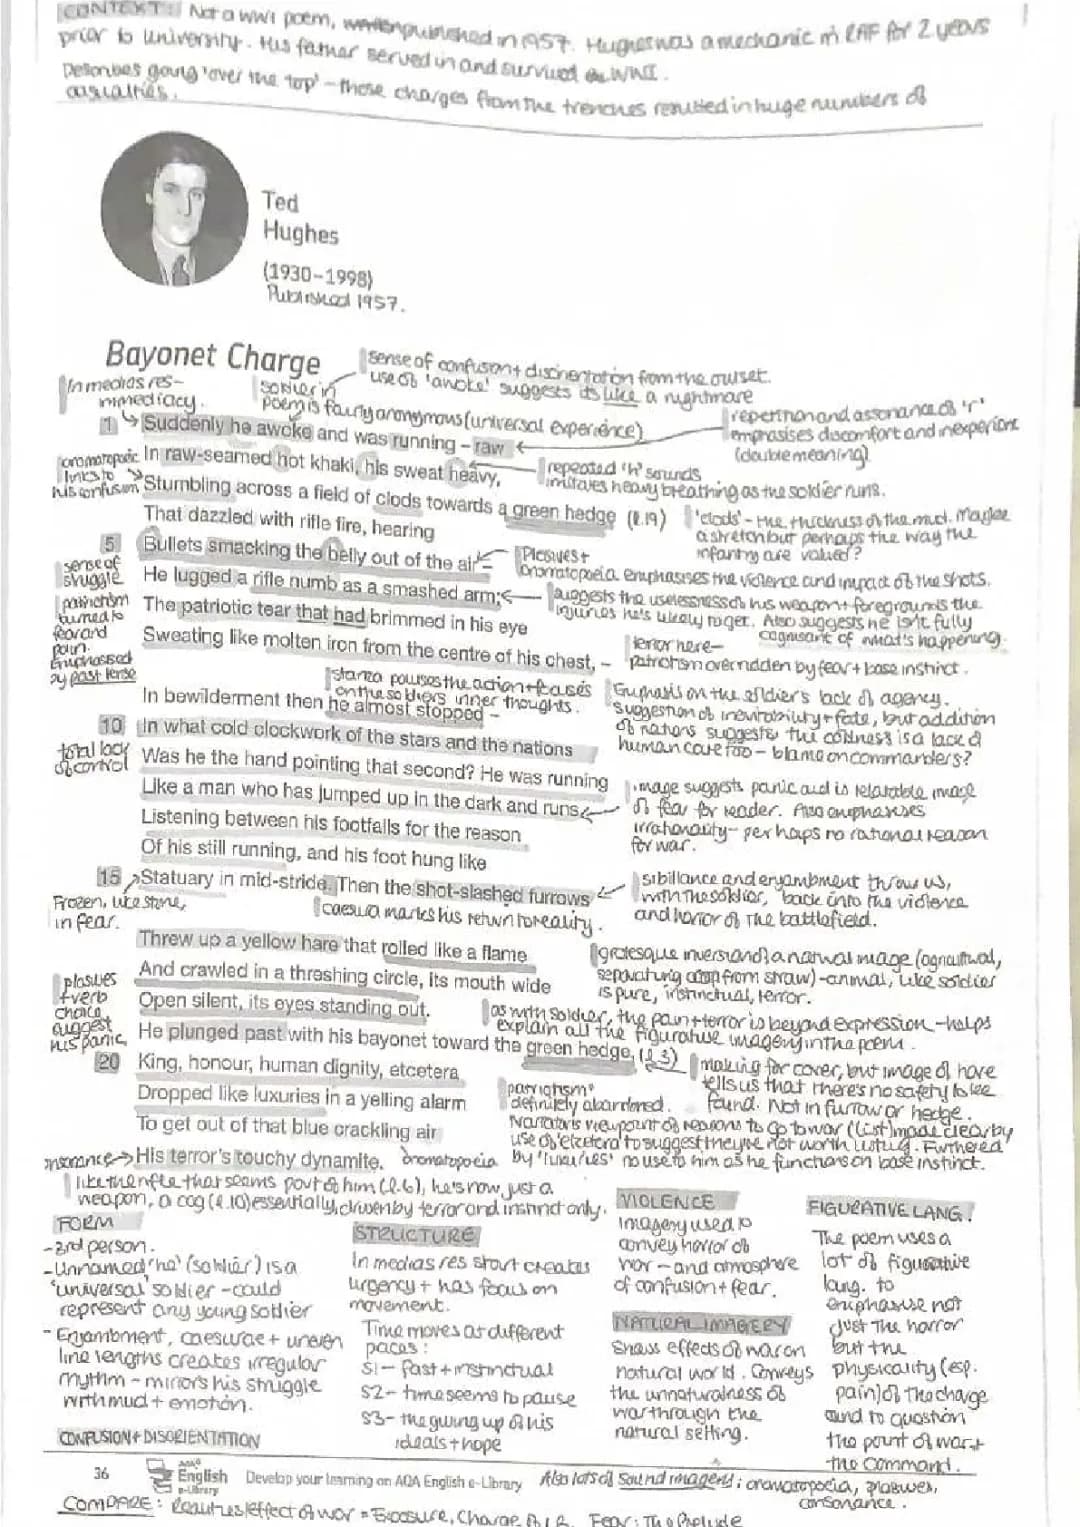 CONTEXT: Not a WW1 poem, published in 1957. Hughes was a mechanic in RAF for 2 years
prior to university. His father served in and survived WWI.
Describes going 'over the top' - those charges from the trenches resulted in huge numbers of
casualties.
Ted
Hughes
(1930–1998)
Published 1957.
Bayonet Charge
sense of confusion + disorientation from the outset.
use of 'awoke' suggests its like a nightmare
In medias res -
immediacy.
soldier in
poem is fairly anonymous (universal experience)
repetition and assonance of 'r'
emphasises discomfort and inexperience
(double meaning)
1 Suddenly he awoke and was running – raw
In raw-seamed hot khaki, his sweat heavy,
repeated 'h' sounds
imitates heavy breathing as the soldier runs.
onomatopoeic
links to
his confusion
Stumbling across a field of clods towards a green hedge (l.19)
'clods' - the thickness of the mud. Maybe
a stretch but perhaps the way the
infantry are valued?
That dazzled with rifle fire, hearing
5 Bullets smacking the belly out of the air –
Plosives +
onomatopoeia emphasises the violence and impact of the shots.
sense of
struggle
He lugged a rifle numb as a smashed arm;
suggests the uselessness of his weapon + foregrounds the
injuries he's likely to get. Also suggests he isn't fully
cognisant of what's happening.
patriotism
turned to
fear and
pain.
Emphasised
by past tense
The patriotic tear that had brimmed in his eye
Sweating like molten iron from the centre of his chest, –
terror here -
patriotism overridden by fear + base instinct.
stanza pauses the action + focuses
on the soldiers inner thoughts.
In bewilderment then he almost stopped –
10 In what cold clockwork of the stars and the nations
Emphasis on the soldier's lack of agency.
suggestion of inevitability + fate, but addition
of nations suggests the coldness is a lack of
human care too - blame on commanders?
total lack
of control
Was he the hand pointing that second? He was running
Like a man who has jumped up in the dark and runs
image suggests panic and is relatable image
of fear for reader. Also emphasises
irrationality - perhaps no rational reason
for war.
Listening between his footfalls for the reason
Of his still running, and his foot hung like
15 Statuary in mid-stride. Then the shot-slashed furrows
sibillance and enjambment throw us,
with the soldier, back into the violence
and horror of the battlefield.
Frozen, like stone,
in fear.
caesura marks his return to reality.
Threw up a yellow hare that rolled like a flame
And crawled in a threshing circle, its mouth wide
grotesque inversion of a natural image (agricultural,
separating crop from straw) - animal, like soldier
is pure, instinctual, terror.
Open silent, its eyes standing out.
as with soldier, the pain + terror is beyond expression - helps
explain all the figurative imagery in the poem.
plosives
+ verb
choice
suggest
his panic
He plunged past with his bayonet toward the green hedge, (l.3)
making for cover, but image of hare
tells us that there's no safety to be
found. Not in furrow or hedge.
20 King, honour, human dignity, etcetera
Dropped like luxuries in a yelling alarm
patriotism
definitely abandoned.
Narrator's viewpoint of reasons to go to war (list) made clear by
use of 'etcetera' to suggest they're not worth listing. Furthered
by 'luxuries' no use to him as he functions on base instinct.
To get out of that blue crackling air
His terror's touchy dynamite.
onomatopoeia
like the rifle that seems part of him (l.6), he's now just a
weapon, a cog (l.10) essentially, driven by terror and instinct only.
FORM
- 3rd person.
- Unnamed 'he' (soldier) is a
'universal' soldier - could
represent any young soldier
- Enjambment, caesurae + uneven
line lengths creates irregular
rhythm - mirrors his struggle
with mud + emotion.
CONFUSION + DISORIENTATION
STRUCTURE
In medias res start creates
urgency + has focus on
movement.
Time moves at different
paces:
S1 - fast + instinctual
S2 - time seems to pause
S3 - the giving up of his
ideals + hope
VIOLENCE
Imagery used to
convey horror of
war - and atmosphere
of confusion + fear.
NATURAL IMAGERY
Shows effects of war on
natural world. Conveys
the unnaturalness of
war through the
natural setting.
FIGURATIVE LANG.
The poem uses a
lot of figurative
lang. to
emphasise not
just the horror
but the
physicality (esp.
pain) of the charge
and to question
the point of war +
the command.
36
AQA
English
e-Library
Develop your learning on AQA English e-Library
Also lots of sound imagery; onomatopoeia, plosives,
consonance.
COMPARE: Realities/effect of war = Exposure, Charge Fear: The Prelude